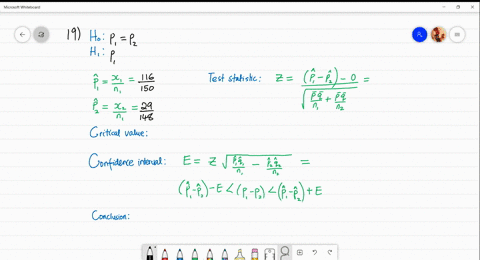 Microsoft Whiteboard
19) H₀: p₁ = p₂
H₁: p₁
p̂₁ = x₁/n₁ = 116/150
Test statistic: Z = (p̂₁-p̂₂) - 0 / √(p̄q̄/n₁ + p̄q̄/n₂) =
p̂₂ = x₂/n₂ = 29/148
Critical value:
Confidence interval: E = Z √(p̂₁q̂₁/n₁ - p̂₂q̂₂/n₂) =
(p̂₁-p̂₂)-E < (p₁-p₂) < (p̂₁-p̂₂) + E
Conclusion: